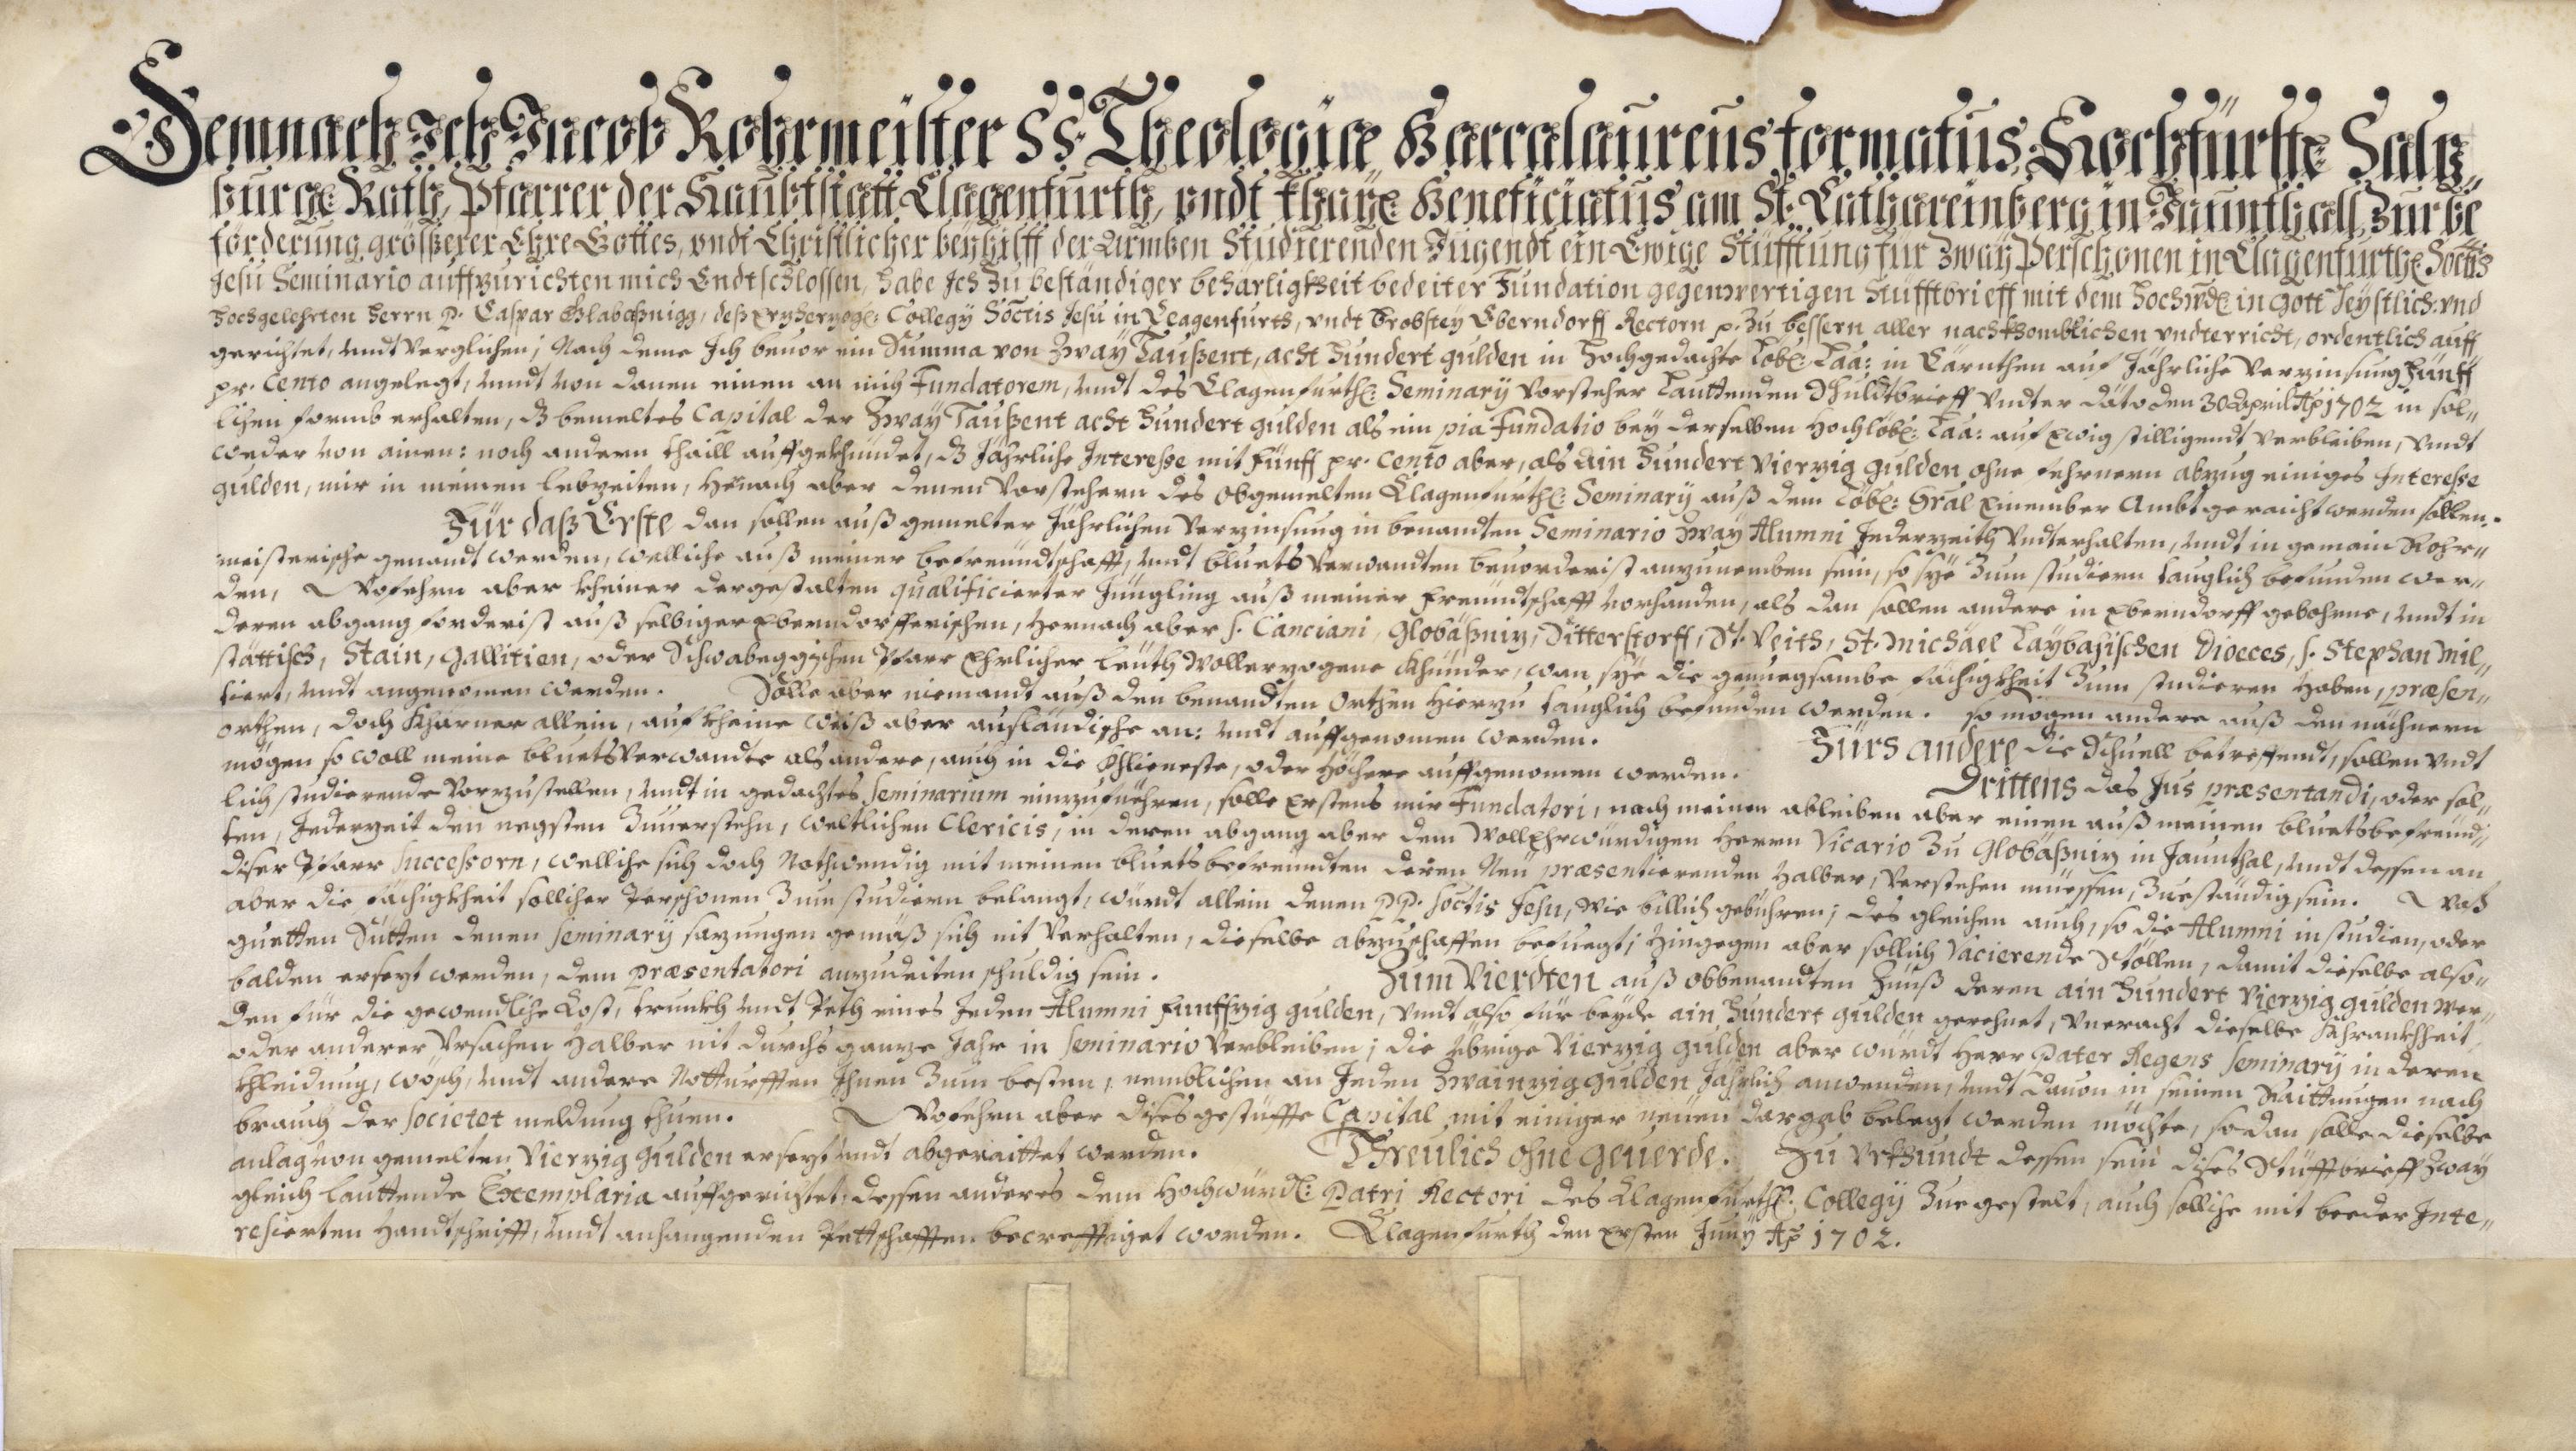 Demnach Ich Jacob Rohrmeister SS. Theologiæ Baccalaureus formatus, Hochfürstl: Saltz„
burg: Rath, Pfarrer der Haubtstatt Clagenfurth, undt khay: Beneficiatus am St. Cathareinberg in Jaunthall, Zur be
förderung grösserer Ehre Gottes, undt Christlicher beÿhilff der Armben Studierenden Jugendt ein Ewige Stüfftung für Zwaÿ Perschonen in Clagenfurth: Soctis
Jesu Seminario auffzurichten mich Endtschlossen, habe Ich Zu beständiger beharligkheit bedeiter Fundation gegenwertigen Stüfftbrieff mit dem Hochwd: in Gott Geÿstlich: und
Hochgelehrten Herrn P. Caspar, deß Ertzhertzog: Collegÿ Soctis Jesu in Clagenfurth, undt Brobsteÿ Eberndorff Rectorn p. Zu bessern aller nachkhomblichen undterricht, ordentlich auff
gerichtet, undt Verglichen; Nach deme Ich beuor ein Summa von Zwaÿ Taußent, acht Hundert gulden in Hochgedachte Löbl: Laa: in Cärnthen auf Jährliche Verzinsung Fünff
pr. Cento angelegt, undt von danen einen an mich Fundatorem, undt des Clagenfurth: Seminarÿ Vorsteher Lauttenden Schuldtbrieff Undter dato den 30 April Aõ 1702 in sol„
lichen formb erhalten, dz bemeltes Capital der Zwaÿ Taußent acht Hundert gulden als ein pia Fundatio beÿ derselben Hochlöbl: Laa: auf Ewig stilligendt Verbleiben, Undt
weder von ainen: noch andern thaill auffgekhündet, dz Jährliche Interesse mit Fünff pr. Cento aber, als Ain Hundert Vierzig gulden ohne fehrnern abzug einiges Interesse
gulden, mir in meinen lebzeiten, Hernach aber denen Vorstehern des obgemelten Clagenfurth: Seminarÿ auß dem Löbl: Gral Einember Ambt geraicht werden sollen.
Für daß Erste dan sollen auß gemelter Jährlichen Verzinsung in benandten Seminario Zwaÿ Alumni Jederzeith Undterhalten, undt in gemain Rohr„
meisterische genandt werden, welliche auß meiner befreundtschafft, undt bluets Verwandten beuorderist anzunemben sein, so sÿe Zum studiern tauglich befunden wer„
den, Wofehrn aber kheiner dergestalten qualificierter Jüngling auß meiner Freundtschafft Vorhanden, als dan sollen andere in Eberndorff gebohrne, undt in
deren abgang forderist auß selbiger Eberndorfferischen, Hernach aber S. Canciani, Globäßniz, Ditterstorff, St. Veith, St. Michäel Laÿbachischen Dioeces, S. Stephan, Mil„
stättisch, Stain, Gallitien, oder Schwabeggischen Pfarr Ehrlicher leuth Wollerzogene Khinder, wan sÿe die genuegsambe fächigkheit Zum studieren Haben, præsen„
tiert, undt angenomen werden. Solle aber niemandt auß den benandten Orthen Hierzu tauglich befunden werden. so mögen andere auß den nächnern
orthen, doch Kharner allein, auf kheine weiß aber ausländische an: undt auffgenomen werden. Fürs andere die Schuell betreffendt, sollen Undt
mögen so woll meine bluets Verwandte als andere, auch in die Khleineste, oder Höchere auffgenomen werden. Drittens das Jus præsentandi, oder sol„
lich studierende Vorzustellen, undt in gedachtes Seminarium einzufüehren, solle Erstens mir Fundatori, nach meinen ableiben aber einen auß meinen bluetsbefreund„
ten, Jederzeit den negsten Zuuerstehn, weltlichen Clericis, in deren abgang aber dem WollEhrwürdigen Herrn Vicario Zu Globäßniz in Jaunthal, undt dessen an
diser Pfarr Successorn, welliche sich doch Nothwendig mit meinen bluets befreundten deren Neu præsentierenden Halber, Verstehen müessen, Zueständig sein. Waß
aber die fächigkheit sollicher Perschonen Zum studiern belangt, würdt allein denen PP. Soctis Jesu, wie billich gebühren; des gleichen auch, so die Alumni in studien, oder
guetten Sütten denen Seminarÿ sazungen gemäß sich nit Verhalten, dieselbe abzuschaffen befuegt; Hingegen aber sollich Vacierende Stöllen, damit dieselbe also„
balden ersezt werden, dem Præsentatori anzudeiten schuldig sein. Zum Vierdten auß obbenandten Zünß deren ain Hundert Vierzig gulden wer„
den für die gewendliche Cost, trunkh undt Peth eines Jeden Alumni Funffzig gulden, Undt also für beÿde ain Hundert gulden gerechnet, Uneracht dieselbe Khrankhheit,
oder anderer Ursachen Halber nit durchs ganze Jahr in Seminario Verbleiben; die Übrige Vierzig gulden aber würdt Herr Pater Regens Seminarÿ in deren
khleidung, wösch, undt andere Notturfften Ihnen Zum besten, nemblichen an Jeden Zwainzig gulden Jährlich anwenden, undt dauon in seinen Raittungen nach
brauch der Societet meldung thuen. Wofehrn aber dises gestüffte Capital mit einiger neuen dargab belegt werden möchte, so dan solle dieselbe
anlag von gemelten Vierzig gulden ersezt undt abgeraittet werden. Threulich ohne geuerde. Zu Urkhundt dessen sein dises Stüfftbrieff Zwaÿ
gleich lauttende Exemplaria auffgerichtet, dessen anderes dem Hochwürdl: Patri Rectori des Klagenfurth: Collegÿ Zuegestelt, auch solliche mit beeder Inte„
resierten Handtschrifft, undt anhangenden Pettschafften becrefftiget worden. Clagenfurth den Ersten Junÿ Aõ 1702.